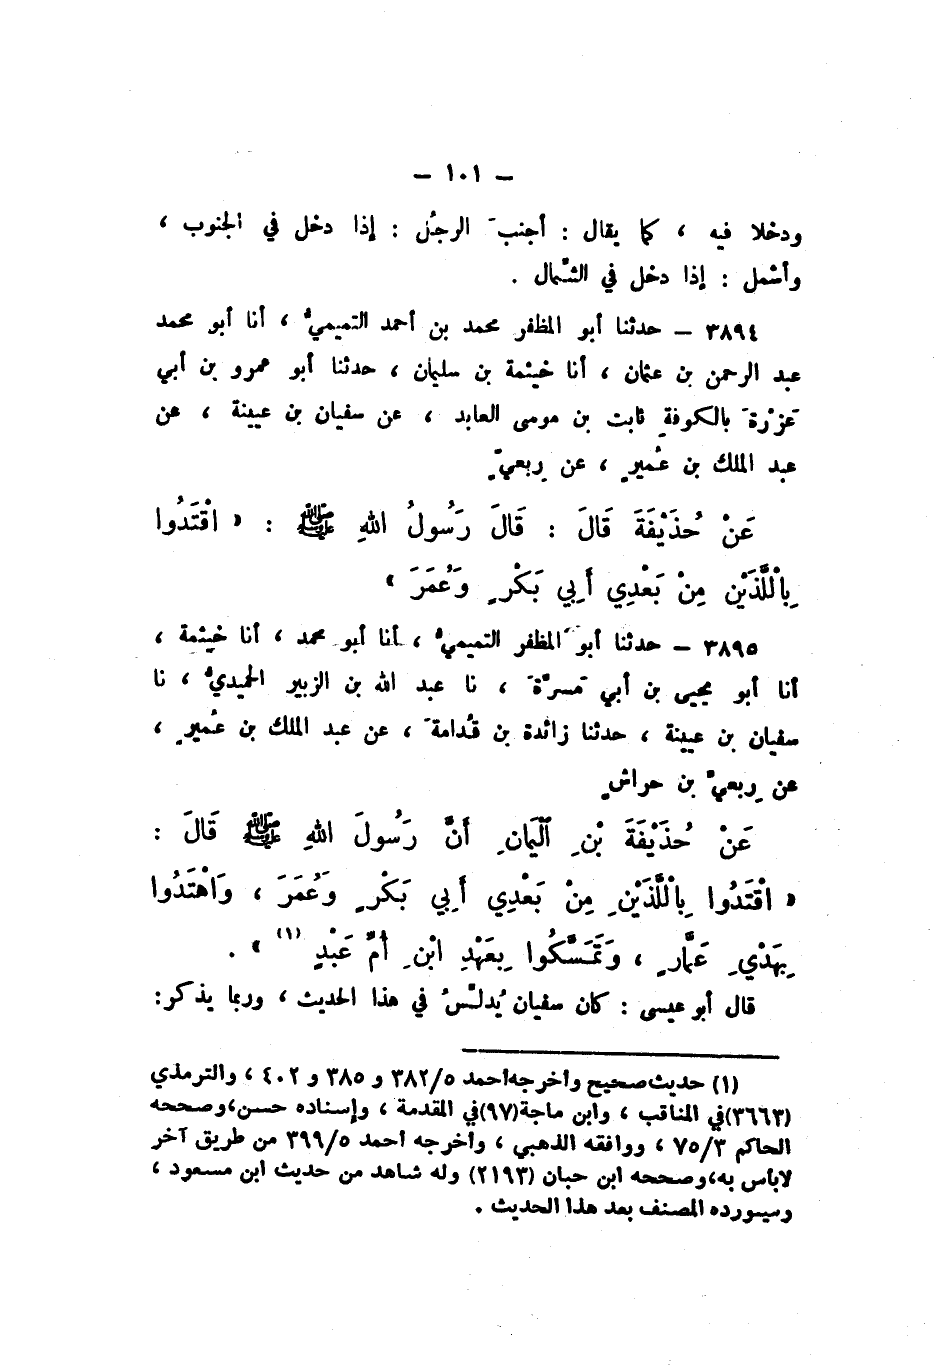 – ١٠١ –
ودخلا فيه ، كما يقال : أجنبَ الرجُل : إذا دخل في الجنوب ،
وأشْمل : إذا دخل في الشَّمال .
٣٨٩٤ – حدثنا أبو المظفر محمد بن أحمد التميميُّ ، أنا أبو محمد
عبد الرحمن بن عثمان ، أنا خيثمة بن سليمان ، حدثنا أبو عمرو بن أبي
عَزْرَة بالكوفةِ ثابت بن موسى العابد ، عن سفيان بن عيينة ، عن
عبد الملك بن عُميرٍ ، عن رِبعيٍّ
عَنْ حُذَيْفَةَ قَالَ : قَالَ رَسُولُ اللهِ ﷺ : « اقْتَدُوا
بِاْللَّذَيْنِ مِنْ بَعْدِي أَبِي بَكْرٍ وَعُمَرَ »
٣٨٩٥ – حدثنا أبو المظفر التميميُّ ، أنا أبو محمد ، أنا خيثمة ،
أنا أبو يحيى بن أبي مَسرَّةَ ، نا عبد الله بن الزبير الحميديُّ ، نا
سفيان بن عيينة ، حدثنا زائدة بن قُدامةَ ، عن عبد الملك بن عُميرٍ ،
عن رِبعيِّ بن حراشٍ
عَنْ حُذَيْفَةَ بْنِ اْليَمَانِ أَنَّ رَسُولَ اللهِ ﷺ قَالَ :
« اقْتَدُوا بِاْللَّذَيْنِ مِنْ بَعْدِي أَبِي بَكْرٍ وَعُمَرَ ، وَاْهْتَدُوا
بِهَدْيِ عَمَّارٍ ، وَتَمَسَّكُوا بِعَهْدِ ابْنِ أُمِّ عَبْدٍ (١) » .
قال أبو عيسى : كان سفيان يُدلِّسُ في هذا الحديث ، وربما يذكر:
(١) حديث صحيح وأخرجه أحمد ٣٨٢/٥ و ٣٨٥ و ٤٠٢ ، والترمذي
(٣٦٦٣)في المناقب ، وابن ماجة(٩٧)في المقدمة ، وإسناده حسن،وصححه
الحاكم ٧٥/٣ ، ووافقه الذهبي ، وأخرجه أحمد ٣٩٩/٥ من طريق آخر
لابأس به،وصححه ابن حبان (٢١٩٣) وله شاهد من حديث ابن مسعود ،
وسيورده المصنف بعد هذا الحديث .